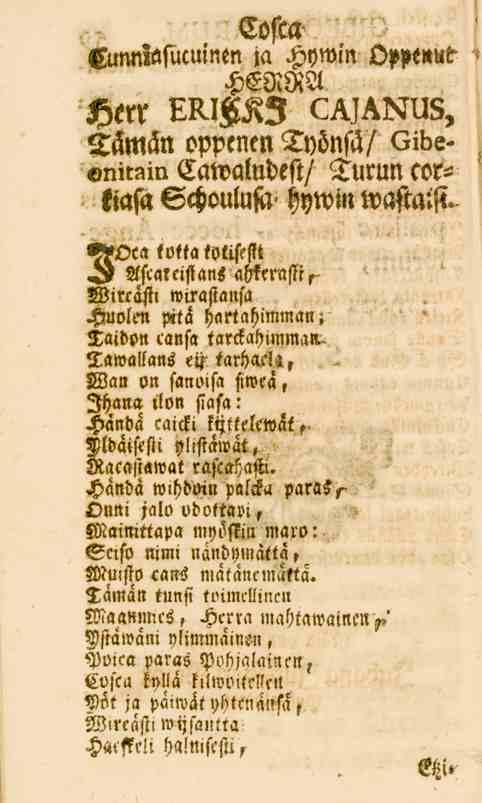 Cosca
Cunniasucuinen ja Hywin Oppenut
HERRA
Herr ERICKI CAJANUS,
Tämän oppenen Työnsä/ Gibe-
onitain Cawaludest/ Turun cor-
kiasa Schoulusa hywin wastaisi.
JOca totta totisesti
Ascareistans ahkerasti,
Wireästi wirastansa
Huolen pitä hartahimman;
Taidon cansa tarckahimman.
Tawallans eij tarhaela,
Wan on sanoisa siweä,
Ihana ilon siasa:
Händä caicki kijttelewät,
Yldäisesti ylistäwät,
Racastawat rascahasti.
Händä wihdoin palcka paras,
Onni jalo odottapi,
Mainittapa myöskin maxo:
Seiso nimi nändymättä,
Muisto cans mätänemättä.
Tämän tunsi toimellinen
Maanmies, Herra mahtawainen,
Ystäwäni ylimmäinen,
Poica paras Pohjalainen,
Cosca kyllä kilwoitellen
Yöt ja päiwät yhtenänsä,
Wireästi wijsautta
Haeskeli halnisesti,
Etzi-